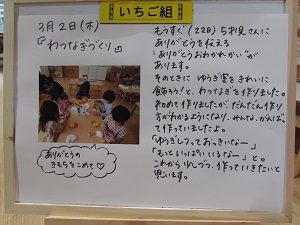 いちご組
3月2日(木)
『わつなぎづくり』
ありがとうの
きもちをこめて♡
もうすぐ(22日)5才児さんに
ありがとうを伝える
"ありがとうおわかれかい"が
あります。
そのときに ゆうぎ室をきれいに
飾ろう!と、わつなぎを作りました。
初めて作りましたが、だんだん作り
方がわかるようになり、みんな、がんば
て作っていましたよ。
「ゆうぎしつっておっきいなー」
「もっといっぱいいるなー」と。
これから少しづつ、作っていきたいと
思います。